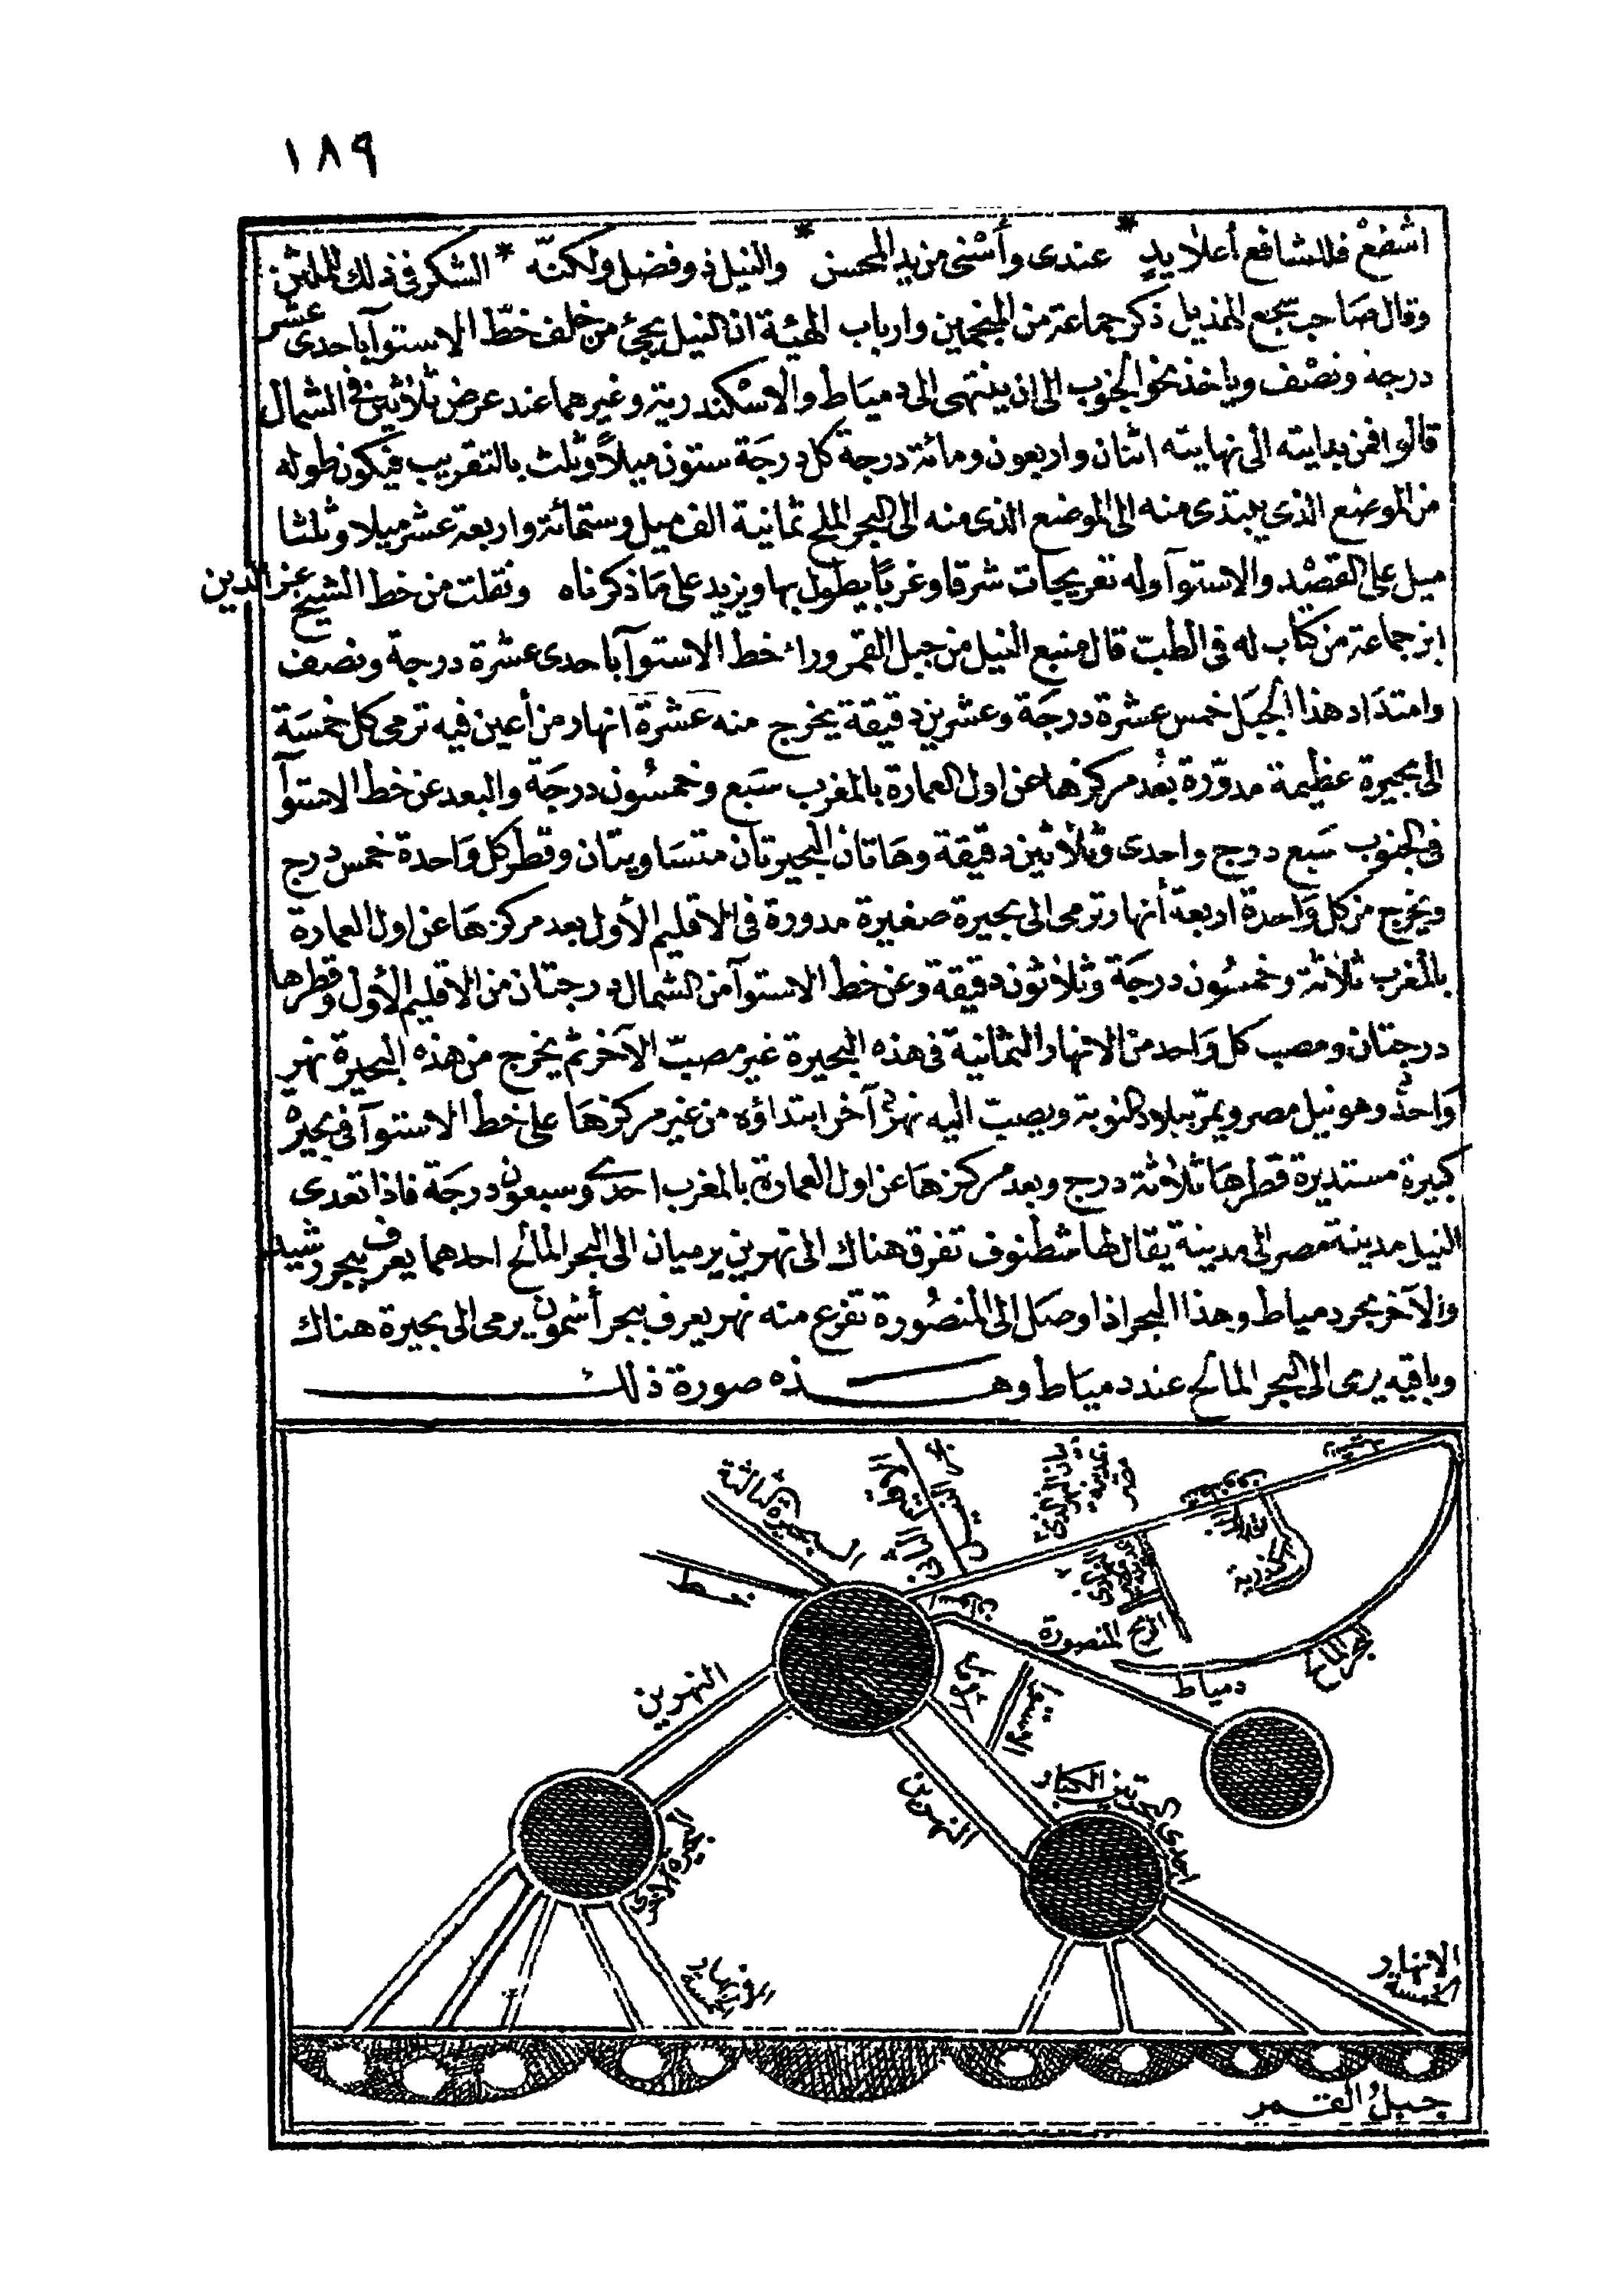 ١٨٩
اشفعْ فللشافع أعلا يدٍ * عندى وأسْنى من يد المحسن * والنيل ذو فضل ولكنّه * الشكر فى ذلك للملتن
وقال صَاحب سجع الهذيل ذكر جماعة من المنجمين وارباب الهيئة ان النيل يجئ من خلف خطّ الاستوآ باحدى عشر
درجة ونصْف وياخذ نحو الجنوب الى ان ينتهى الى دميَاط والاسْكندرية وغيرهما عند عرض ثلاثين فى الشمال
قالوا فمن بدايته الى نهايته اثنان واربعون ومائة درجة كل درجَة ستون ميلاً وثلث بالتقريب فيكون طوله
من الموضع الذى يبتدى منه الى الموضع الذى منه الى البحر الملح ثمانية الف ميل وستمائة واربعة عشر ميلا وثلثا
ميل على القصْد والاستوآ وله تعريجات شرقا وغربًا يطول بها ويزيد على مَا ذكرناه ونقلت من خط الشيخ عز الدين
ابن جماعة من كتاب له فى الطبّ قال منبع النيل من جبل القمر وراء خط الاستوآ باحدى عشرة درجة ونصف
وامتدَاد هذا الجبَل خمس عشرة درجَة وعشرين دقيقة يخرج منه عشرة انهار من أعين فيه ترمى كل خمسَة
الى بحيرة عظيمة مدوّرة بُعد مركزها عن اول العمارة بالمغرب سَبع وخمسُون درجَة والبعد عن خط الاستوآ
فى الجنوب سَبع درج واحدى وثلاثين دقيقة وهَاتان البحيرتان متسَاويتان وقطر كل وَاحدة خمس درج
ويخرج من كل وَاحدة اربعة أنهار ترمى الى بحيرة صغيرة مدورة فى الاقليم الأول بعد مركزهَا عن اول العمارة
بالمغرب ثلاثة وخمسُون درجَة وثلاثون دقيقة وعن خط الاستوآ من الشمال درجتان من الاقليم الأول وقطرها
درجتان ومصب كل وَاحد من الانهار الثمانية فى هذه البحيرة غير مصبّ الآخر ثم يخرج من هذه البحيرة نهر
وَاحدٌ وهو نيل مصر ويمرّ ببلاد النوبة ويصبّ اليه نهرٌ آخر ابتداؤه من غير مركزهَا على خط الاستوآ فى بحيرة
كبيرة مستديرة قطرهَا ثلاثة درج وبعد مركزهَا عن اول العمارة بالمغرب احدى وسبعون درجَة فاذا تعدى
النيل مدينة مصر الى مدينة يقال لها شطنوف تفرق هناك الى نهرين يرميان الى البحر المالح احدهما يعرف ببحر رشيد
والآخر بحر دمياط وهذا البحر اذا وصَل الى المنصُورة تفرع منه نهر يعرف ببحر أشمون يرمى الى بحيرة هناك
وباقيه يرمى الى البحر المالح عند دميَاط وهـــذه صورة ذلك
البحيرة الثالثة
مصر
المنصورة
دمياط
النهرين
النهرين
الانهار
الخمسة
جبل القمر